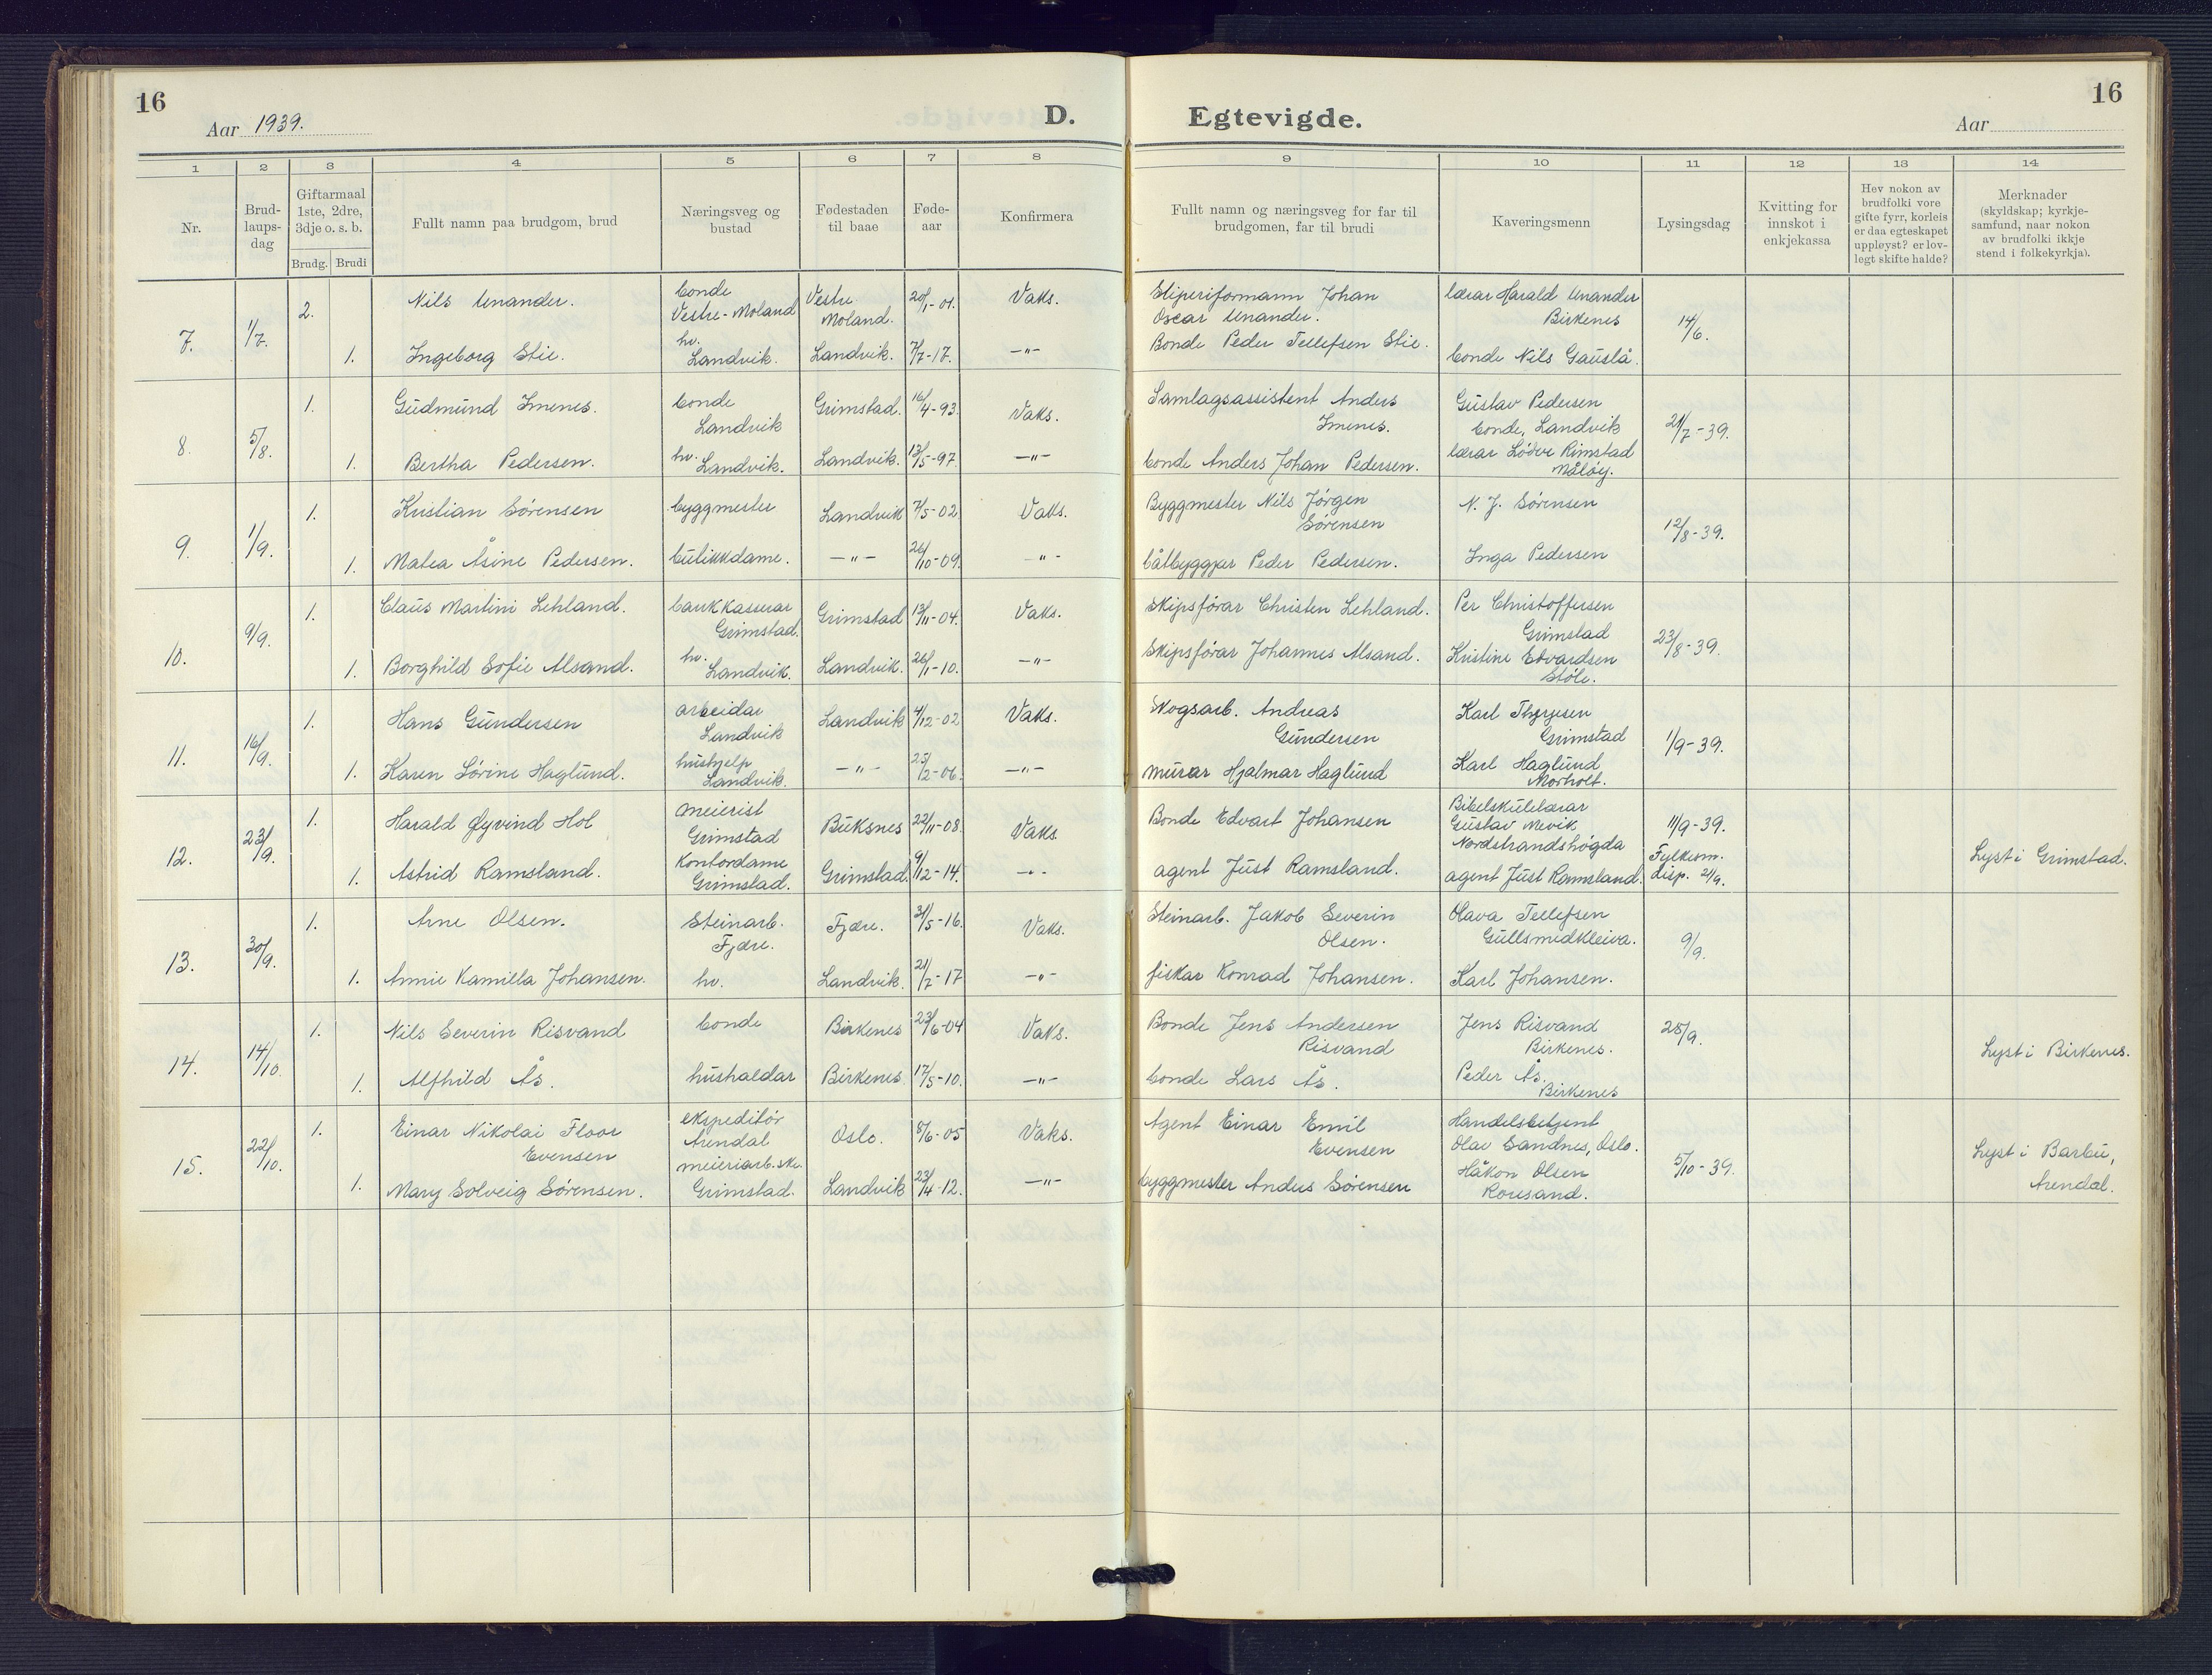 16
Aar 1939.
D.
Egtevigde.
Aar
16
1 2 3 4 5 6 7 8 9 10 11 12 13 14
Nr.
Brud-
laups-
dag
Giftarmaal
1ste, 2dre,
3dje o. s. b.
Brudg. Brudi
Fullt namn paa brudgom, brud
Næringsveg og
bustad
Fødestaden
til baae
Føde-
aar
Konfirmera
Fullt namn og næringsveg for far til
brudgomen, far til brudi
Kaveringsmenn
Lysingsdag
Kvitting for
innskot i
enkjekassa
Hev nokon av
brudfolki vore
gifte fyrr, korleis
er daa egteskapet
uppløyst? er lov-
legt skifte halde?
Merknader
(skyldskap; kyrkje-
samfund, naar nokon
av brudfolki ikkje
stend i folkekyrkja).
7. 1/7.
2. Nils Unander. bonde Vestre-Moland Vestre Moland. 20/1-01. Vaks. Sliperiformann Johan Oscar Unander. lærar Harald Unander Birkenes 14/6.
1. Ingeborg Stie. hv. Landvik. Landvik. 7/7-17. —"— Bonde Peder Tellefsen Stie. bonde Nils Gauslå.
8. 5/8.
1. Gudmund Imenes. bonde Landvik Grimstad. 16/4-93. Vaks. Samlagsassistent Anders Imenes. Gustav Pedersen bonde, Landvik 21/7-39.
1. Bertha Pedersen. hv. Landvik. Landvik. 13/5-97. —"— bonde Anders Johan Pedersen. lærar Rimstad Måløy.
9. 1/9.
1. Kristian Sørensen byggmester Landvik 7/5-02. Vaks. Byggmester Nils Jørgen Sørensen N. J. Sørensen 12/8-39.
1. Matea Åsine Pedersen. butikkdame. —"— 26/10-09. —"— båtbyggjar Peder Pedersen. Inga Pedersen
10. 9/9.
1. Claus Martini Lehland. bankkasserar Grimstad. Grimstad 13/11-04. Vaks. Skipsførar Christen Lehland. Per Christoffersen Grimstad 23/8-39.
1. Borghild Sofie Alsand. hv. Landvik. Landvik. 26/1-10. —"— Skipsførar Johannes Alsand. Kristine Edvardsen Støle.
11. 16/9.
1. Hans Gundersen arbeidar Landvik Landvik 4/12-02 Vaks. Skogsarb. Andreas Gundersen Karl Grimstad 1/9-39.
1. Karen Sørine Haglund. hushjelp Landvik. —"— 25/2-06. —"— murar Hjalmar Haglund Karl Haglund Morholt.
12. 23/9.
1. Harald Øyvind Hol meierist Grimstad Buksnes 22/11-08. Vaks. Bonde Edvart Johansen Bibelskulelærar Gustav Mevik Nordstrandshøgda 11/9-39.
1. Astrid Ramsland. kontordame Grimstad. Grimstad. 9/12-14. —"— agent Just Ramsland. agent Just Ramsland. Fylkesm. disp. 21/9. Lyst i Grimstad.
13. 30/9.
1. Arne Olsen. Steinarb. Fjære. Fjære. 31/5-16. Vaks. Steinarb. Jakob Severin Olsen. Olava Tellefsen Gullsmedkleiva. 9/9.
1. Annie Kamilla Johansen. hv. Landvik. 21/7-17 —"— fiskar Konrad Johansen. Karl Johansen.
14. 14/10.
1. Nils Severin Risvand bonde Birkenes 23/6-04 Vaks. Bonde Jens Andersen Risvand Jens Risvand Birkenes. 28/9.
1. Alfhild Ås. hushaldar Birkenes 17/5-10. —"— bonde Lars Ås. Peder Ås. Birkenes Lyst i Birkenes.
15. 22/10.
1. Einar Nikolai Floor Evensen ekspeditør Arendal Oslo. 8/6-05 Vaks. Agent Einar Emil Evensen Handelsbetjent Olav Sandnes, Oslo. 5/10-39.
1. Mary Solveig Sørensen. meieriarb.ske. Grimstad. Landvik 23/4-12. —"— byggmester Anders Sørensen Håkon Olsen Roresand. Lyst i Barbu, Arendal.